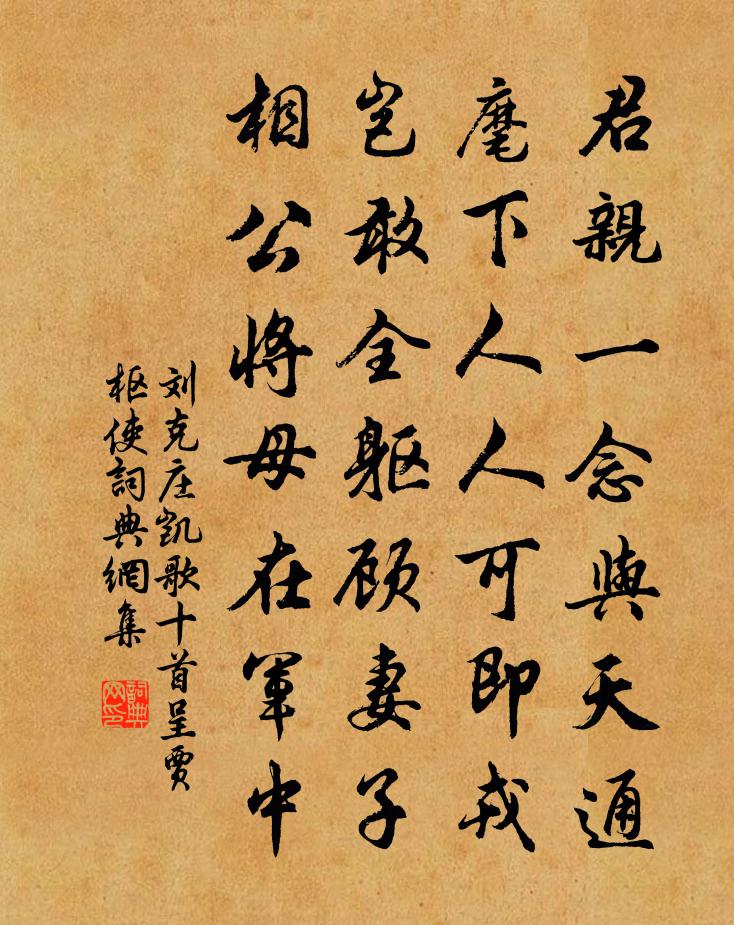 君親一念與天通
麾下人人可即戎
岂敢全躯顾妻子
相公將母在軍中
刘克庄凯歌十首呈贾
枢使詞典網集
詞典
网印